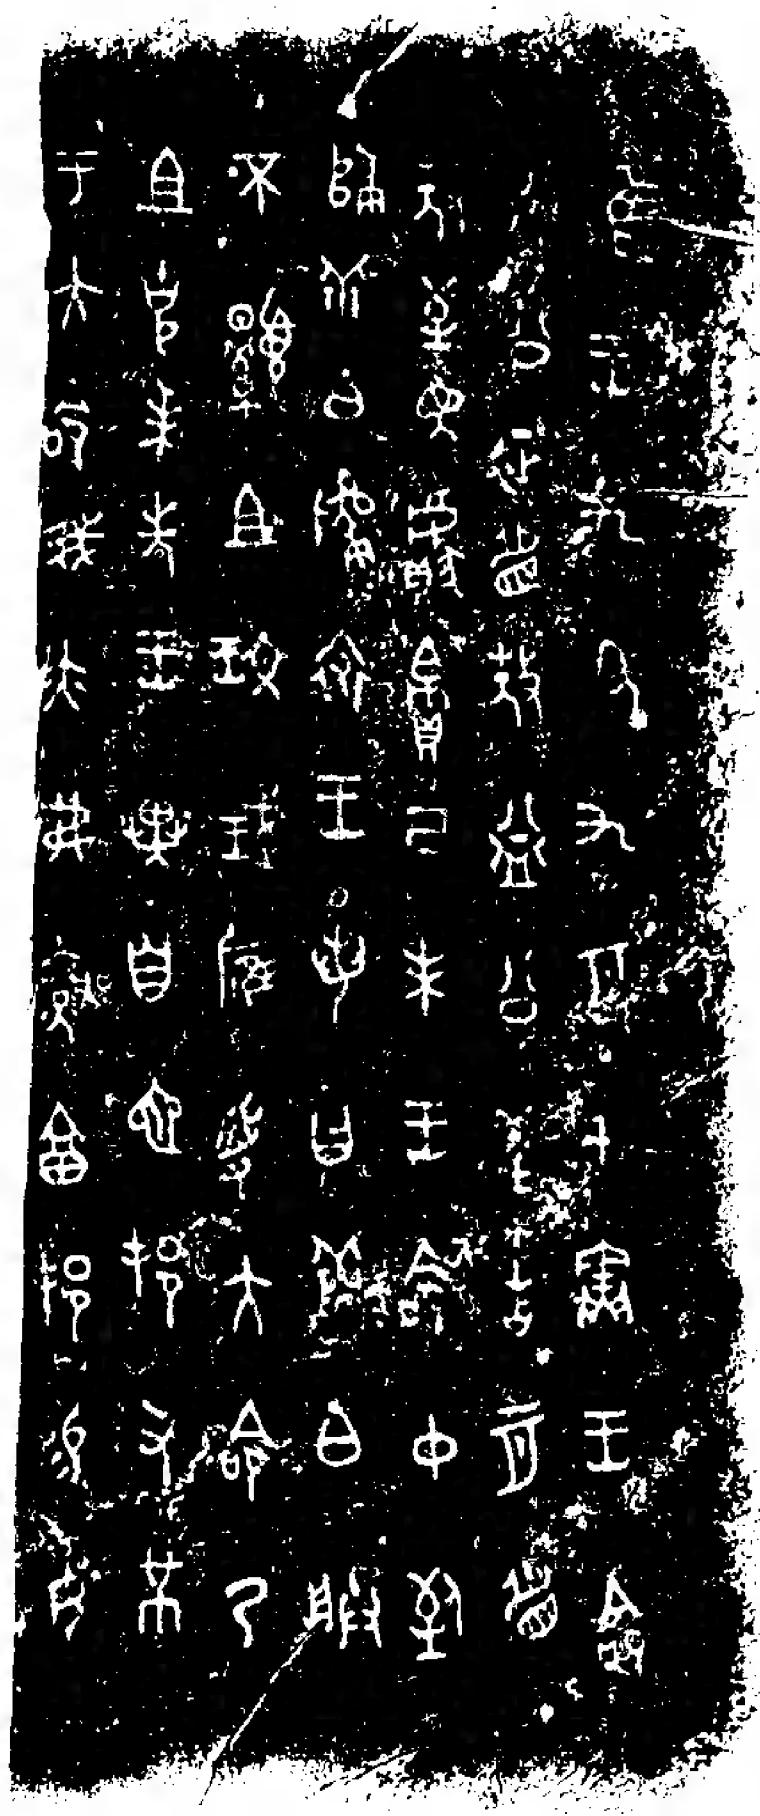 隹王九年九月甲寅王命
益公征眉敖益公至告二月眉
敖至見獻帛己未王命中致
歸乖白貔裘王若曰乖白朕
不顯且玟珷膺受大命乃
且克𠦪先王異自它邦又芇
于大命我亦弗深享邦易女